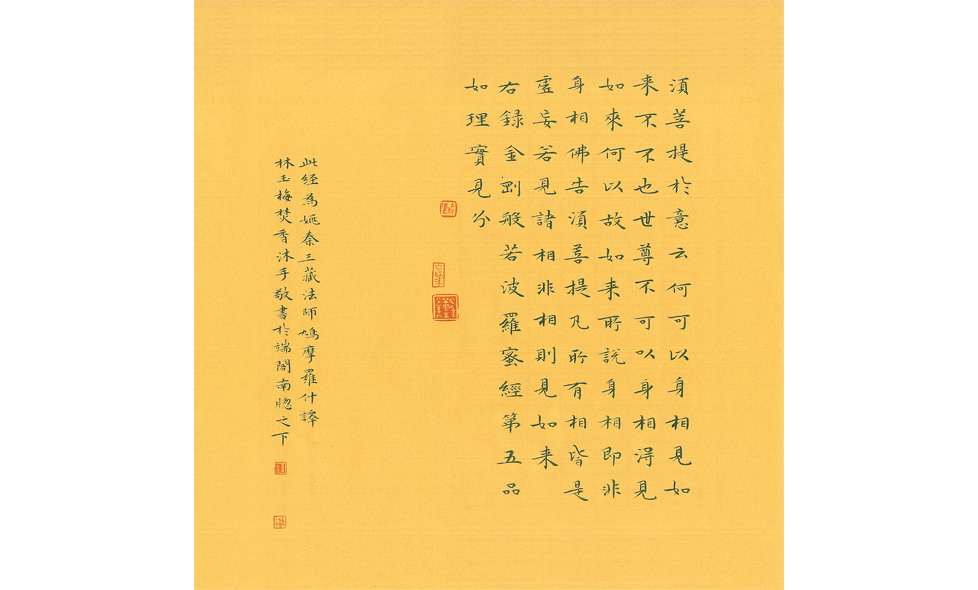 湏菩提於意云何可以身相見如
来不不也世尊不可以身相淂見
如來何以故如来所說身相即非
身相佛告湏菩提凡所有相皆是
虛妄若見諸相非相則見如来
右録金剛般若波羅蜜經第五品
如理實見分
此経為姚秦三藏法師鳩摩羅什譯
林玉梅焚香沐手敬書於端閣南牕之下